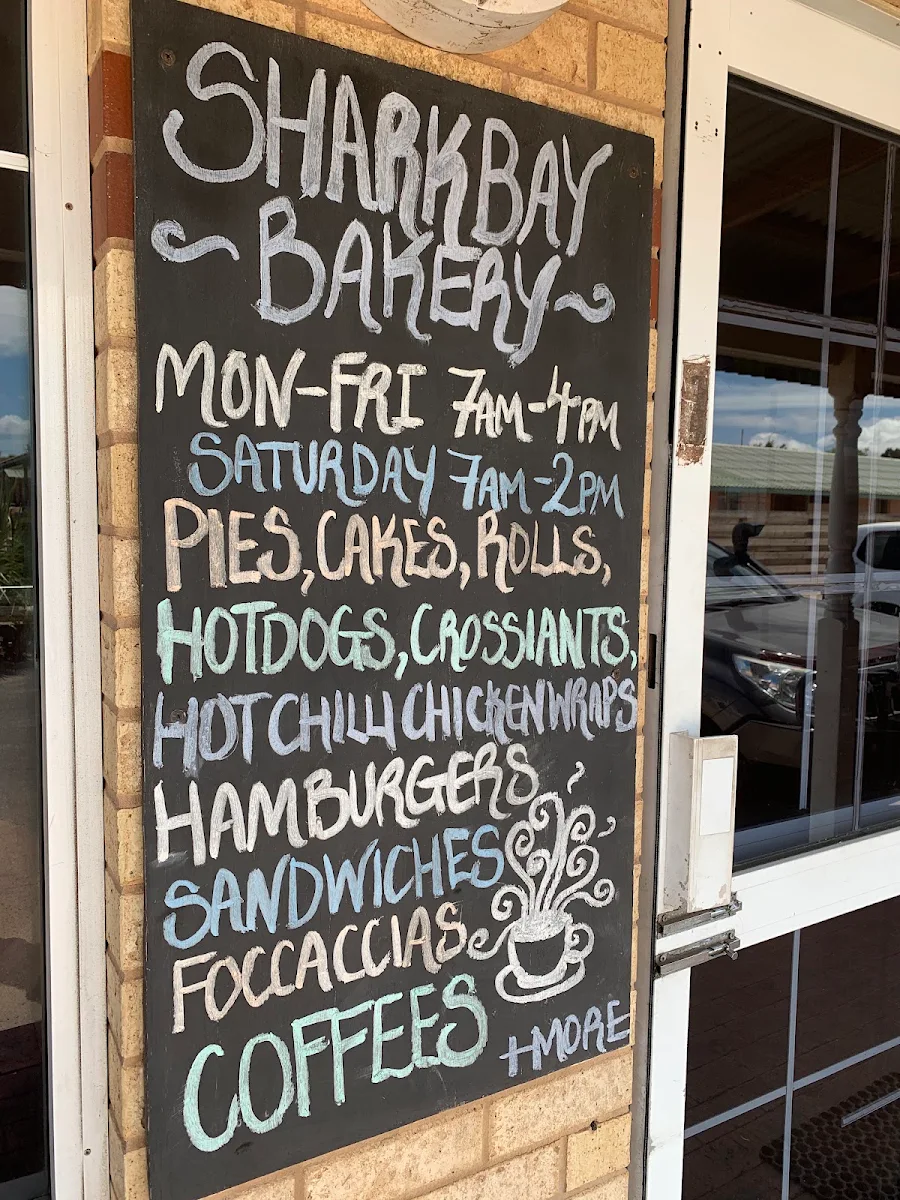 SHARK BAY
BAKERY
MON-FRI 7AM-4PM
SATURDAY 7AM-2PM
PIES, CAKES, ROLLS,
HOTDOGS, CROSSIANTS,
HOT CHILLI CHICKEN WRAPS
HAMBURGERS
SANDWICHES
FOCCACCIAS
COFFEES
+MORE